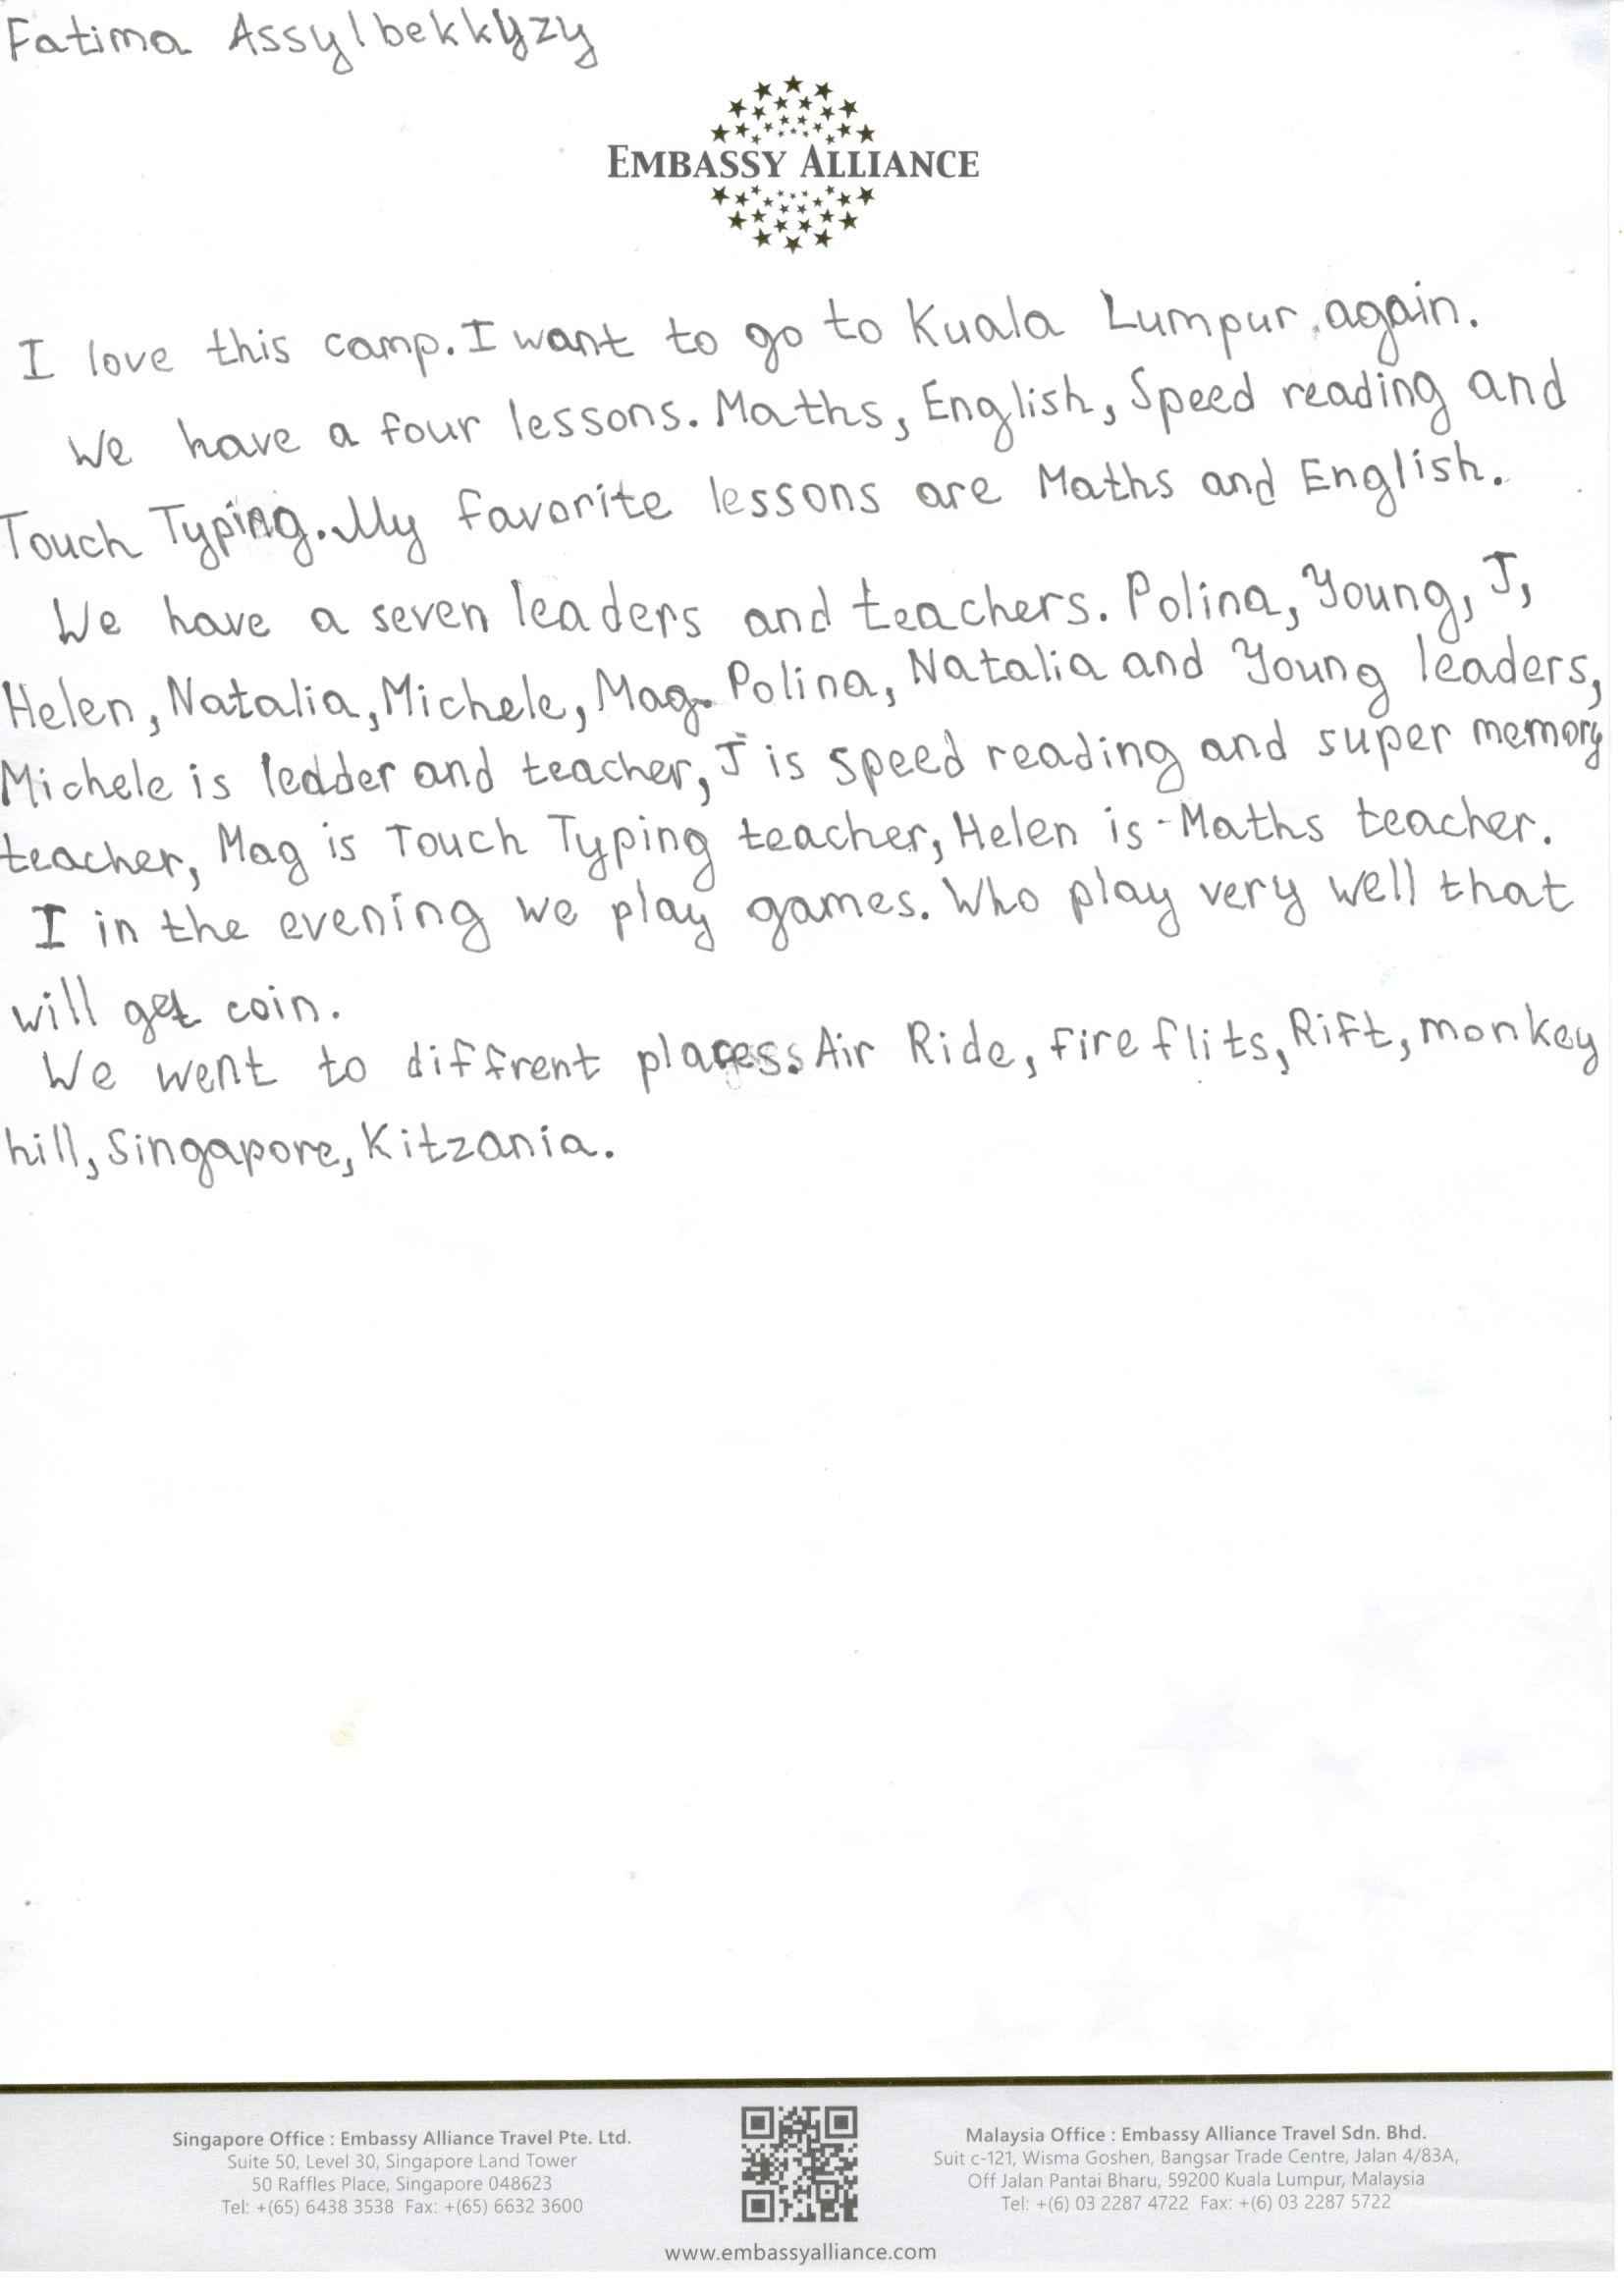 Fatima Assylbekkyzy
EMBASSY ALLIANCE
I love this camp. I want to go to Kuala Lumpur again.
We have a four lessons. Maths, English, Speed reading and
Touch Typing. My favorite lessons are Maths and English.
We have a seven leaders and teachers. Polina, Young, J,
Helen, Natalia, Michele, Mag. Polina, Natalia and Young leaders,
Michele is ledder and teacher, J is speed reading and super memory
teacher, Mag is Touch Typing teacher, Helen is - Maths teacher.
I in the evening we play games. Who play very well that
will get coin.
We went to diffrent places. Air Ride, fire flits, Rift, monkey
hill, Singapore, Kitzania.
Singapore Office : Embassy Alliance Travel Pte. Ltd.
Suite 50, Level 30, Singapore Land Tower
50 Raffles Place, Singapore 048623
Tel: +(65) 6438 3538 Fax: +(65) 6632 3600
Malaysia Office : Embassy Alliance Travel Sdn. Bhd.
Suit c-121, Wisma Goshen, Bangsar Trade Centre, Jalan 4/83A,
Off Jalan Pantai Bharu, 59200 Kuala Lumpur, Malaysia
Tel: +(6) 03 2287 4722 Fax: +(6) 03 2287 5722
www.embassyalliance.com